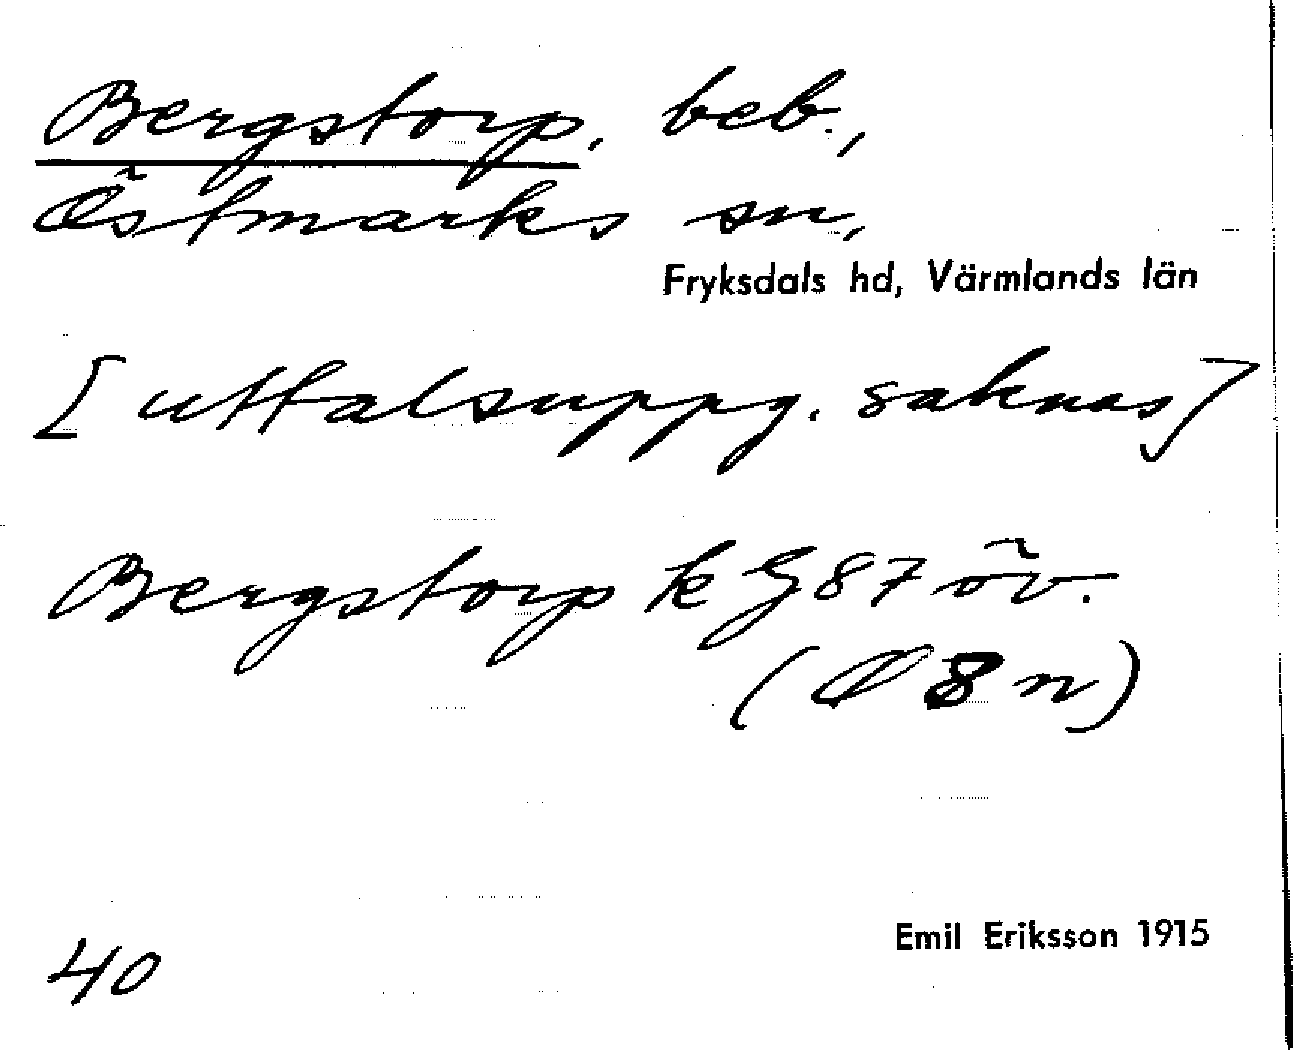 Bergstorp, beb.,
Östmarks sn,
Fryksdals hd, Värmlands län
[uttalsuppg. saknas]
Bergstorp k G 87 öv.
( 8 n)
Emil Eriksson 1915
40